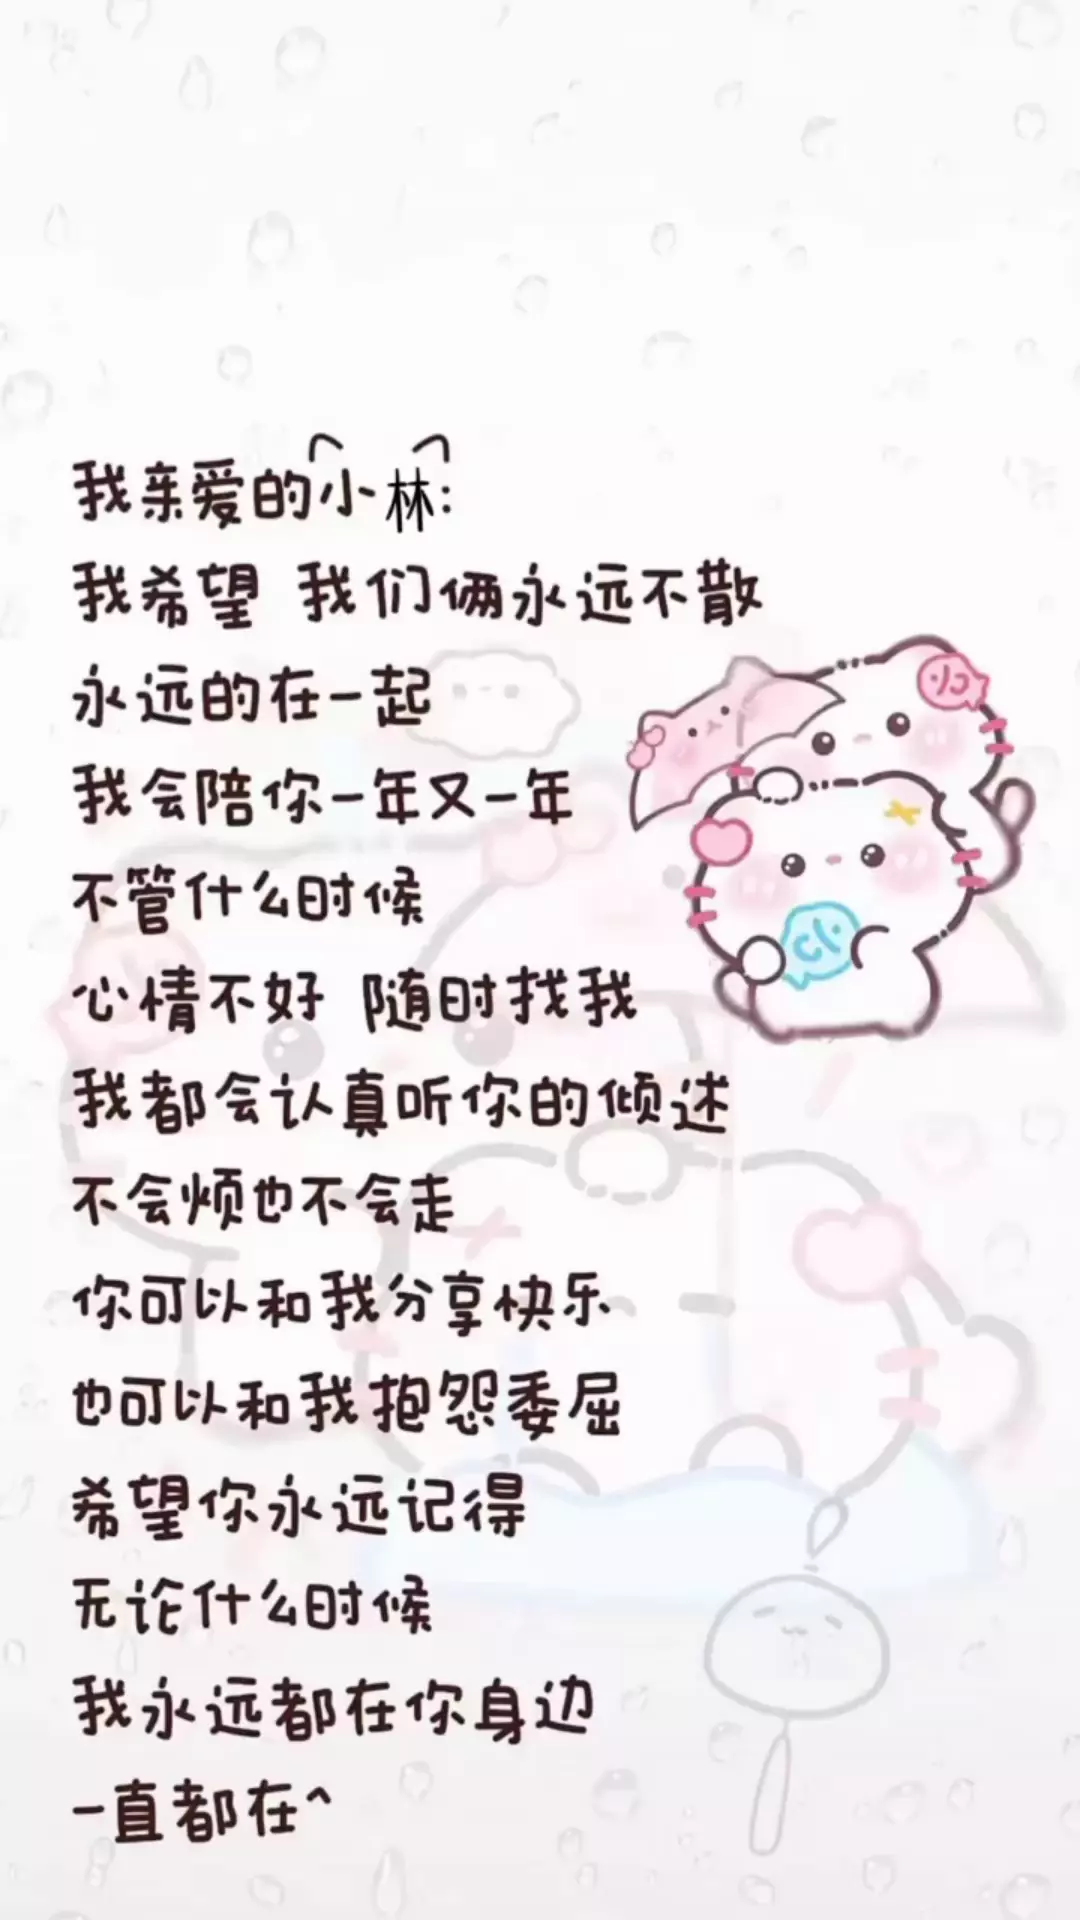 我亲爱的小林:
我希望 我们俩永远不散
永远的在一起
我会陪你一年又一年
不管什么时候
心情不好 随时找我
我都会认真听你的倾述
不会烦也不会走
你可以和我分享快乐
也可以和我抱怨委屈
希望你永远记得
无论什么时候
我永远都在你身边
一直都在^